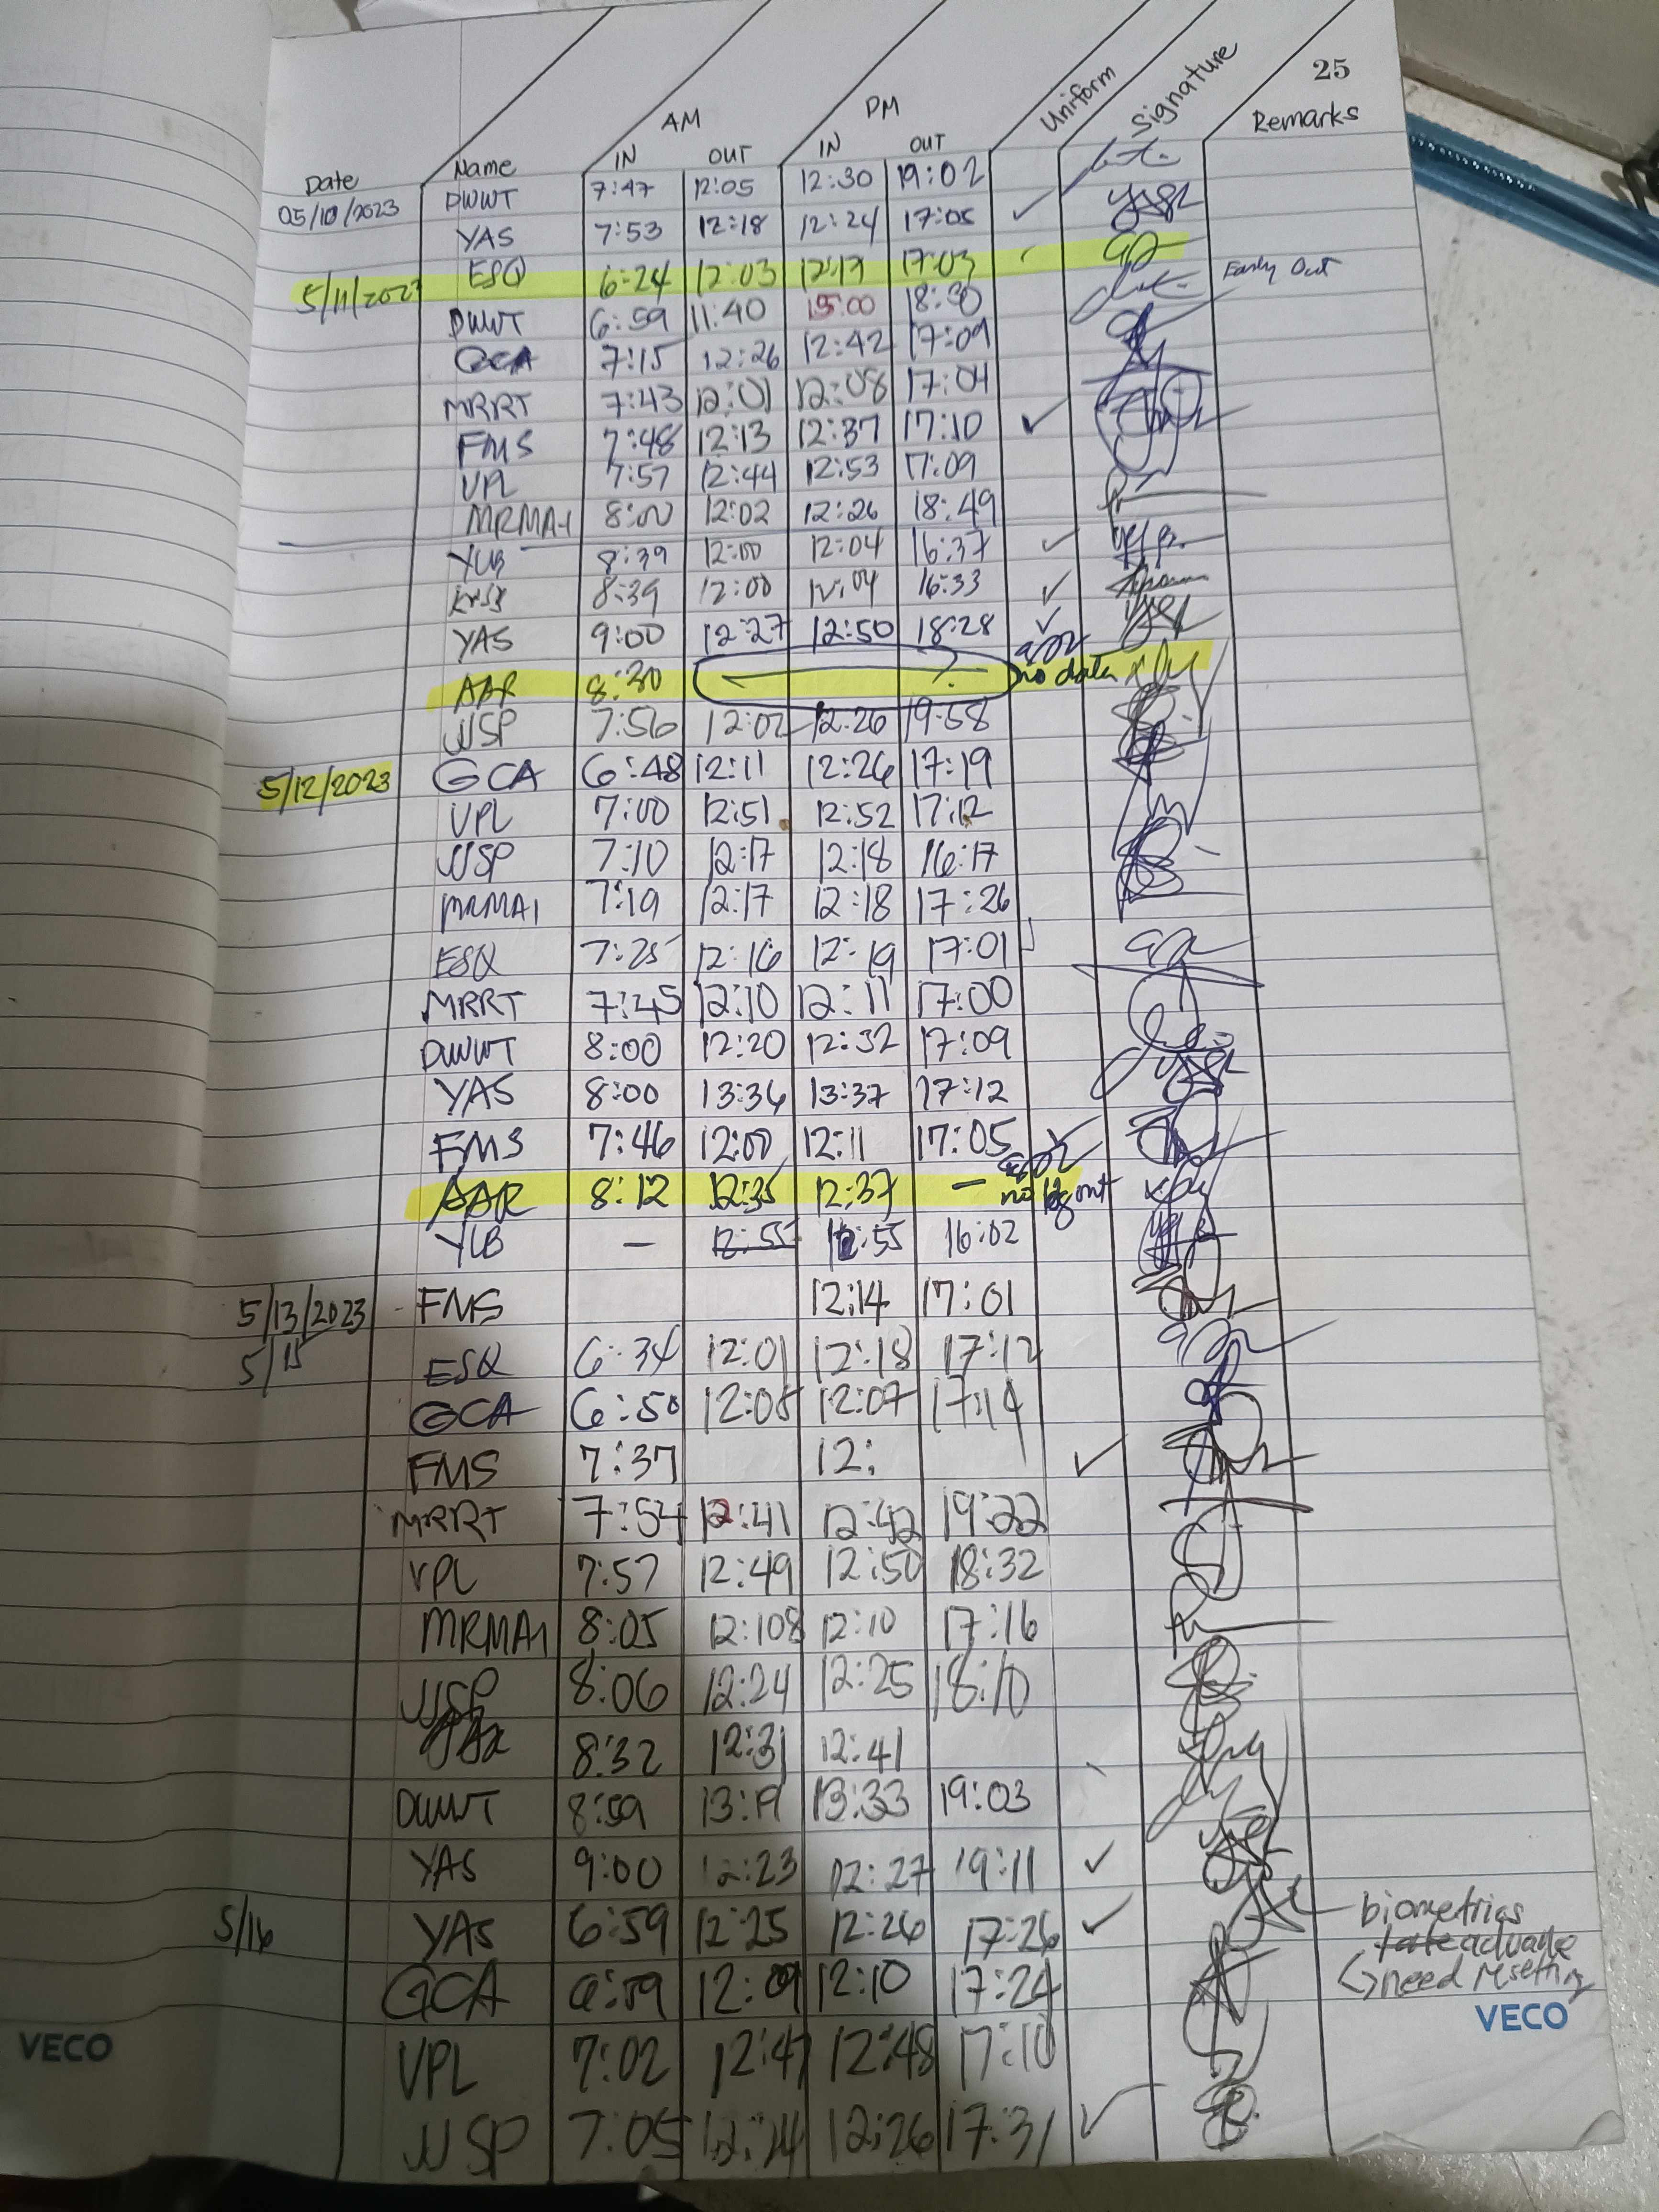 25
AM PM Uniform Signature Remarks
Date Name IN OUT IN OUT
05/10/2023 DWWT 7:47 12:05 12:30 19:02
YAS 7:53 12:18 12:24 17:05 ✓
5/11/2023 ESQ 6:24 12:03 12:17 17:03
DWWT 6:59 11:40 15:00 18:30 Early Out
GCA 7:15 12:26 12:42 17:09
MRRT 7:43 12:01 12:08 17:04
FMS 7:48 12:13 12:37 17:10 ✓
VPL 7:57 12:44 12:53 17:09
MRMA1 8:00 12:02 12:26 18:49
YLB 8:39 12:00 12:04 16:37 ✓
8:39 12:00 12:04 16:33 ✓
YAS 9:00 12:27 12:50 18:28 ✓
AAR 8:30 no data
JJSP 7:56 12:02 12:26 19:58
5/12/2023 GCA 6:48 12:11 12:26 17:19
VPL 7:00 12:51 12:52 17:12
JJSP 7:10 12:17 12:18 16:17
MRMA1 7:19 12:17 12:18 17:26
ESQ 7:25 12:16 12:19 17:01
MRRT 7:45 12:10 12:11 17:00
DWWT 8:00 12:20 12:32 17:09
YAS 8:00 13:36 13:37 17:12
FMS 7:46 12:00 12:11 17:05 ✓
AAR 8:12 12:35 12:37 — no log out
YLB — 12:55 12:55 16:02
5/13/2023 - FMS 12:14 17:01
5/15 ESQ 6:34 12:01 12:18 17:12
GCA 6:50 12:05 12:07 17:14
FMS 7:37 12: ✓
MRRT 7:54 12:41 12:42 19:22
VPL 7:57 12:49 12:50 18:32
MRMA1 8:05 12:108 12:10 17:16
JJSP 8:06 12:24 12:25 18:10
8:32 12:31 12:41
DWWT 8:59 13:19 13:33 19:03
YAS 9:00 12:23 12:27 19:11 ✓
5/16 YAS 6:59 12:25 12:26 17:26 ✓ biometrics
GCA 6:59 12:09 12:10 17:24 need resetting
VPL 7:02 12:47 12:48 17:10
JJSP 7:05 12:24 12:26 17:31 ✓
VECO
VECO